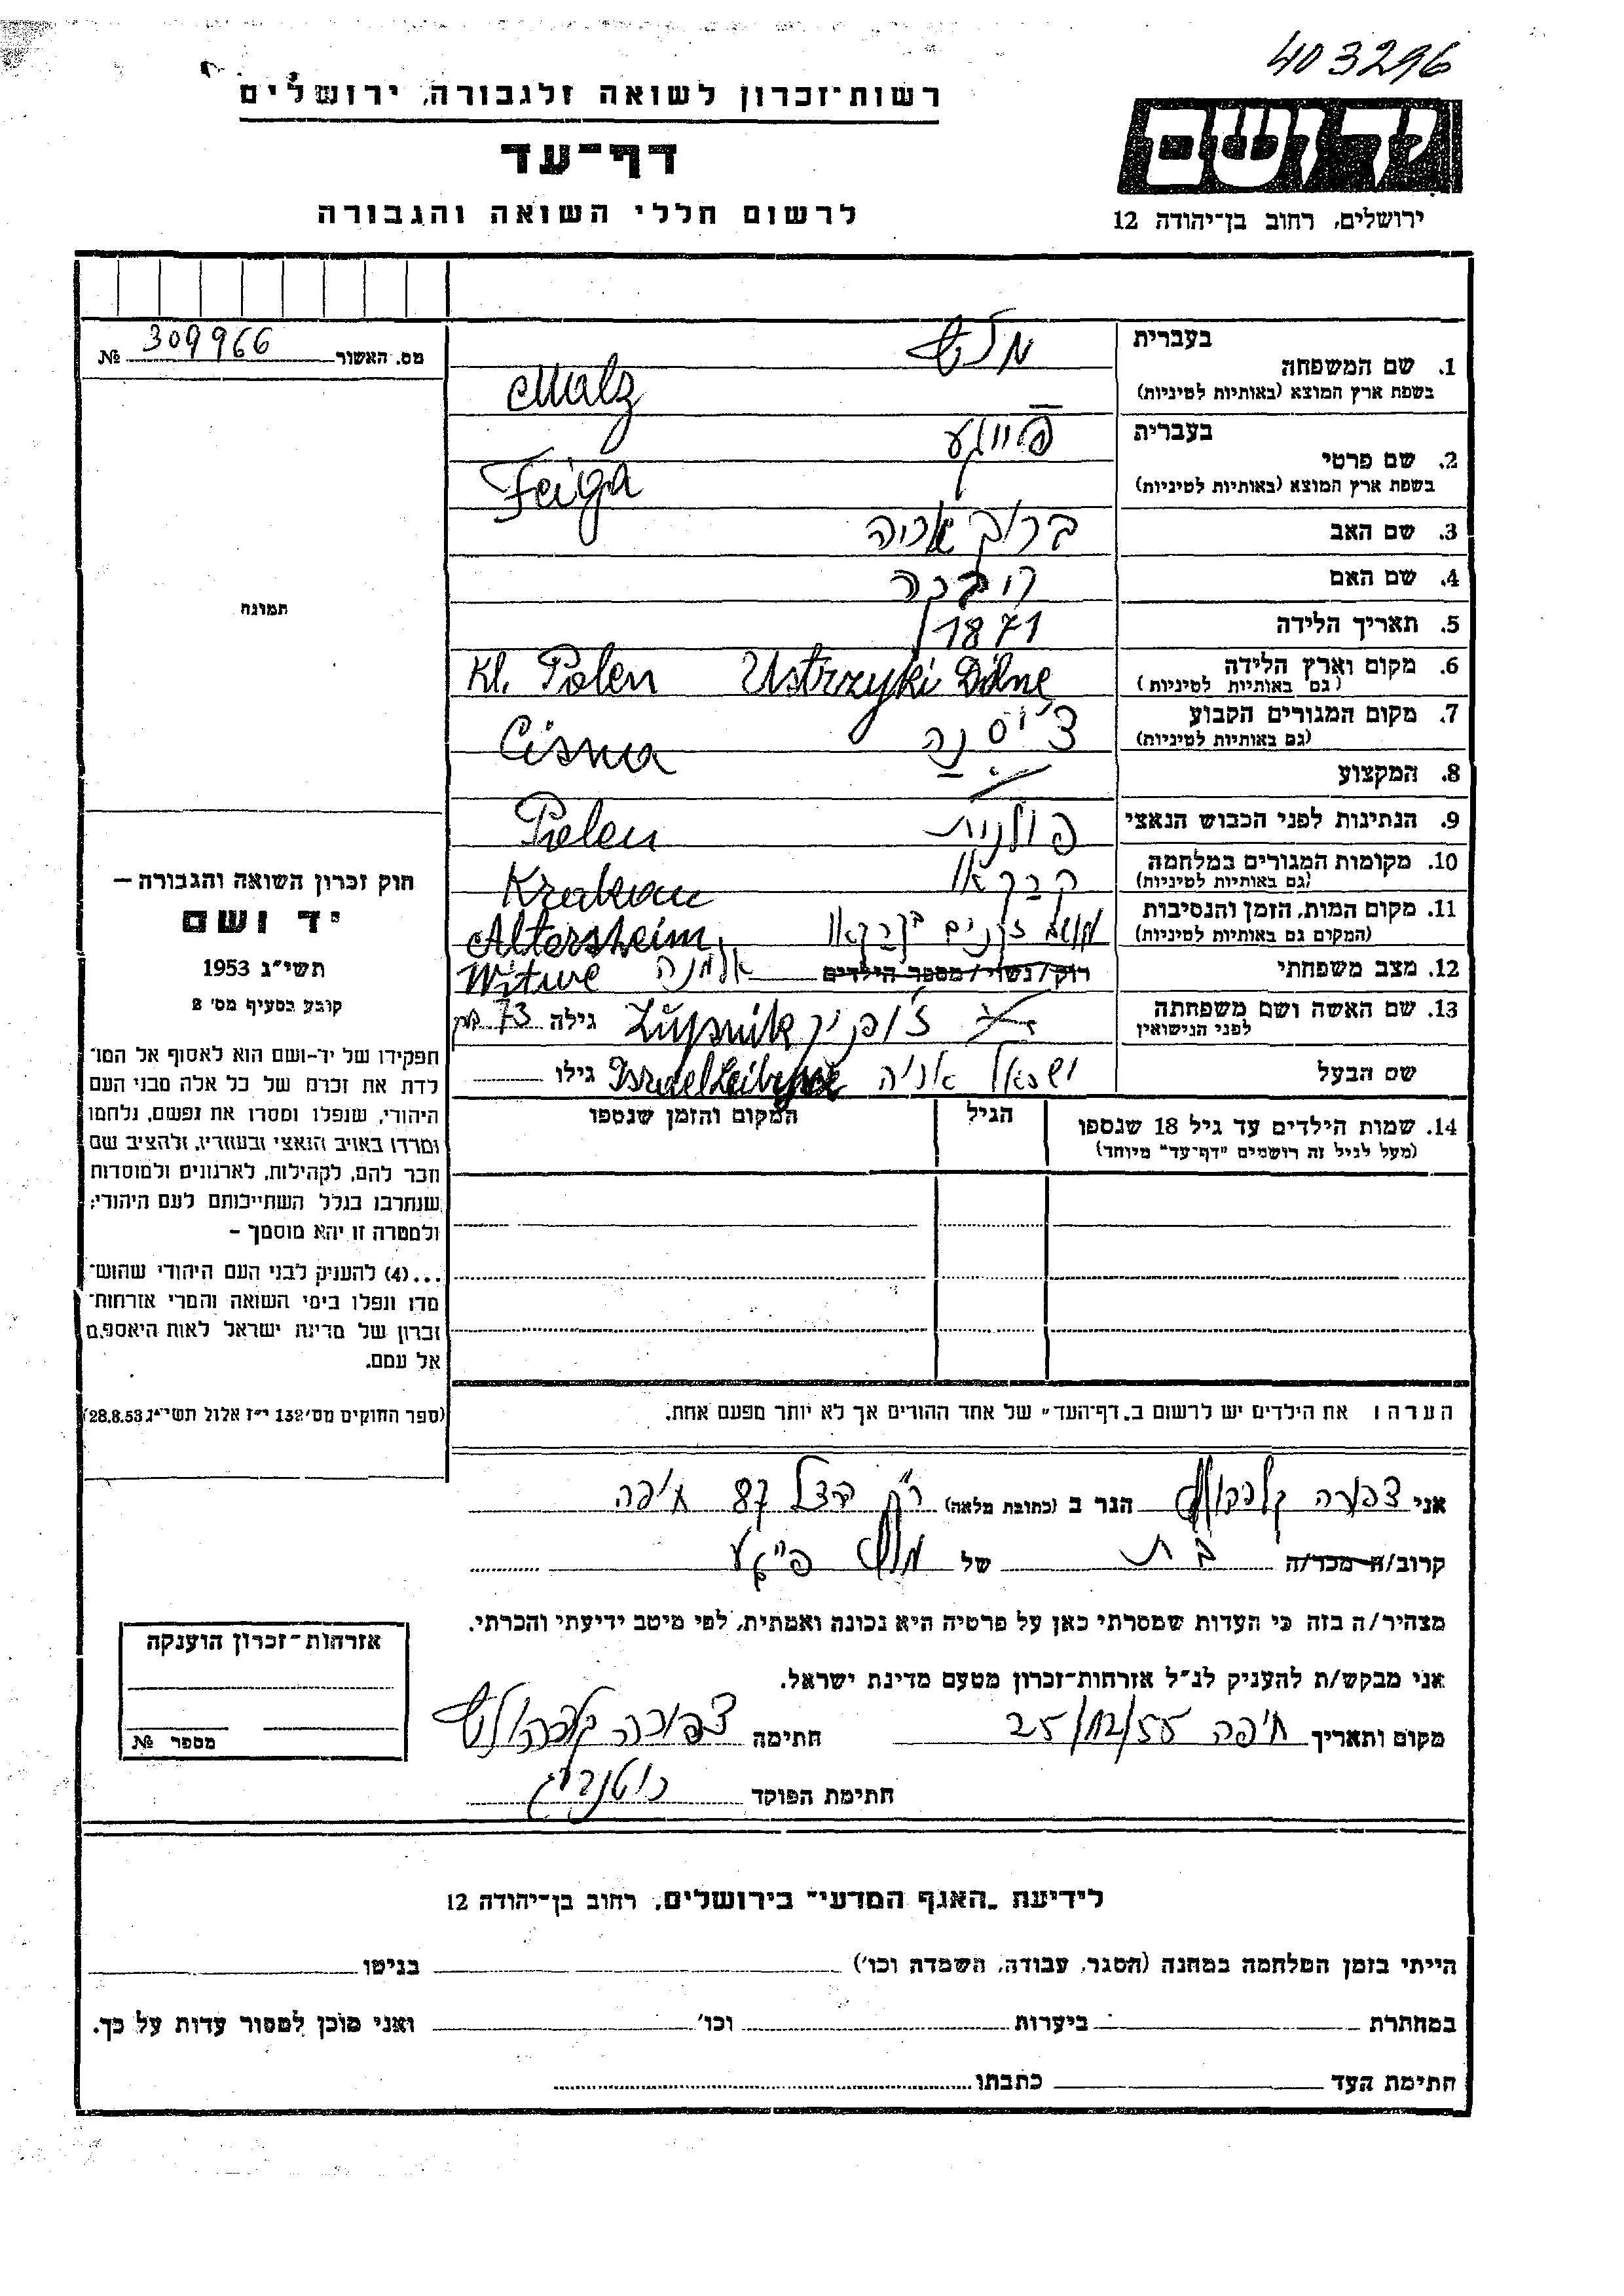 403296
רשות־זכרון לשואה ולגבורה, ירושלים
דף־עד
לרשום חללי השואה והגבורה
יד ושם
ירושלים, רחוב בן־יהודה 12
מס. האשור 309966 №
תמונה
חוק זכרון השואה והגבורה —
יד ושם
תשי״ג 1953
קובע בסעיף מס׳ 2
תפקידו של יד־ושם הוא לאסוף אל המו־
לדת את זכרם של כל אלה מבני העם
היהודי, שנפלו ומסרו את נפשם, נלחמו
ומרדו באויב הנאצי ובעוזריו, ולהציב שם
וזכר להם, לקהילות, לארגונים ולמוסדות
שנחרבו בגלל השתייכותם לעם היהודי;
ולמטרה זו יהא מוסמך –
...(4) להעניק לבני העם היהודי שהוש־
מדו ונפלו בימי השואה והמרי אזרחות־
זכרון של מדינת ישראל לאות היאספם
אל עמם.
(ספר החוקים מס׳ 132 י״ז אלול תשי״ג 28.8.53)
בעברית מלץ
1. שם המשפחה
בשפת ארץ המוצא (באותיות לטיניות) Malz
בעברית פייגע
2. שם פרטי
בשפת ארץ המוצא (באותיות לטיניות) Feiga
3. שם האב ברוך אריה
4. שם האם רבקה
5. תאריך הלידה 1871
6. מקום וארץ הלידה Ustrzyki Dolne Kl. Polen
(גם באותיות לטיניות)
7. מקום המגורים הקבוע צ׳יסנה Cisna
(גם באותיות לטיניות)
8. המקצוע
9. הנתינות לפני הכבוש הנאצי פולנית Polen
10. מקומות המגורים במלחמה קרקאו Krakau
(גם באותיות לטיניות)
11. מקום המות, הזמן והנסיבות מושב זקנים בקרקאו Altersheim
(המקום גם באותיות לטיניות)
12. מצב משפחתי רוק/נשוי/מספר הילדים אלמנה Witwe
13. שם האשה ושם משפחתה ז׳ופניק Zupnik גילה 73
לפני הנישואין
שם הבעל ישראל אריה Israel Leib גילו
14. שמות הילדים עד גיל 18 שנספו הגיל המקום והזמן שנספו
(מעל לגיל זה רושמים ״דף־עד״ מיוחד)
הערה: את הילדים יש לרשום ב„דף־העד״ של אחד ההורים אך לא יותר מפעם אחת.
אני צפורה הגר ב (כתובת מלאה) רח׳ הרצל 87 חיפה
קרוב/ה מכר/ה בת של מלץ פייגע
מצהיר/ה בזה כי העדות שמסרתי כאן על פרטיה היא נכונה ואמתית, לפי מיטב ידיעתי והכרתי.
אני מבקש/ת להעניק לנ״ל אזרחות־זכרון מטעם מדינת ישראל.
מקום ותאריך חיפה 25/12/55 חתימה צפורה
חתימת הפוקד
אזרחות־זכרון הוענקה
מספר №
לידיעת „האגף המדעי״ בירושלים, רחוב בן־יהודה 12
הייתי בזמן המלחמה במחנה (הסגר, עבודה, השמדה וכו׳) בגיטו
במחתרת ביערות וכו׳ ואני מוכן למסור עדות על כך.
חתימת העד כתבתו